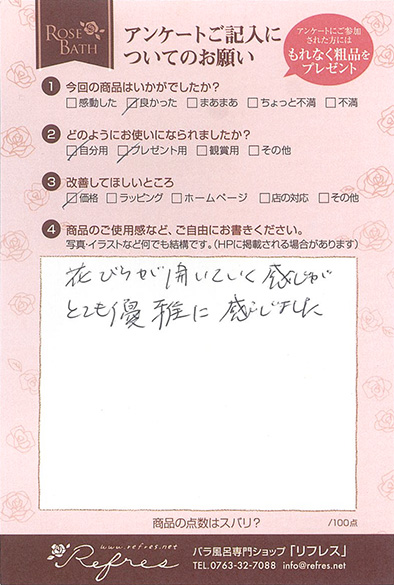 ROSE BATH
アンケートご記入についてのお願い
アンケートにご参加
された方には
もれなく粗品を
プレゼント
1 今回の商品はいかがでしたか?
□感動した □良かった □まあまあ □ちょっと不満 □不満
2 どのようにお使いになられましたか?
□自分用 □プレゼント用 □観賞用 □その他
3 改善してほしいところ
□価格 □ラッピング □ホームページ □店の対応 □その他
4 商品のご使用感など、ご自由にお書きください。
写真・イラストなど何でも結構です。(HPに掲載される場合があります)
花びらが開いていく感じが
とても優雅に感じました
商品の点数はズバリ? /100点
www.refres.net
Refres
バラ風呂専門ショップ「リフレス」
TEL.0763-32-7088 info@refres.net